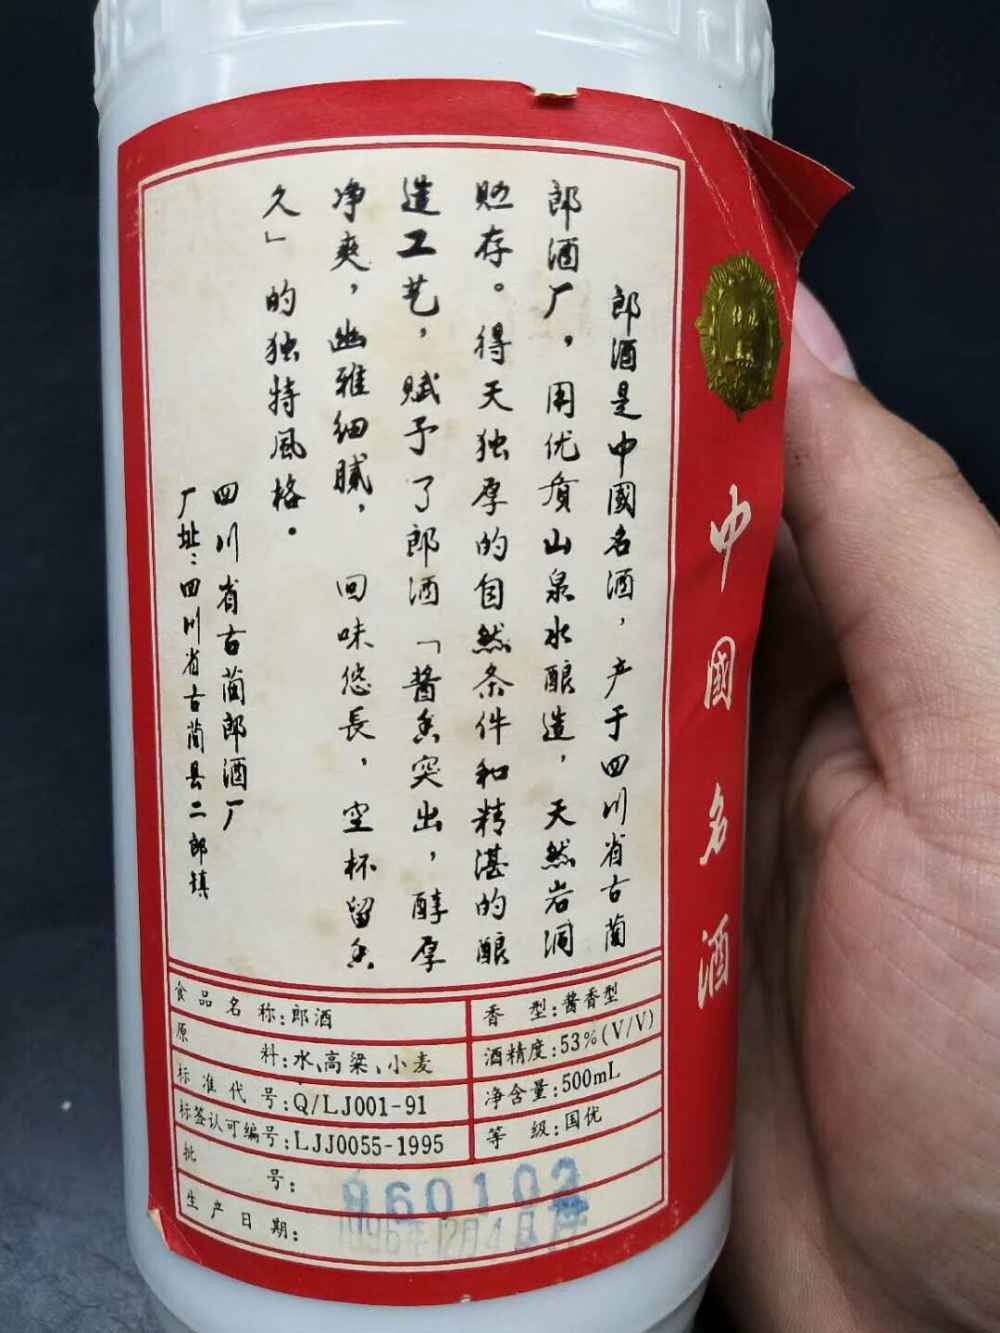 中國名酒
郎酒是中國名酒，产于四川省古蔺
郎酒厂。用优质山泉水酿造，天然岩洞
贮存。得天独厚的自然条件和精湛的酿
造工艺，赋予了郎酒「酱香突出，醇厚
净爽，幽雅细腻，回味悠長，空杯留香
久」的独特风格。
四川省古蔺郎酒厂
厂址：四川省古蔺县二郎镇
食品名称：郎酒
香型：酱香型
原料：水、高粱、小麦
酒精度：53%(V/V)
标准代号：Q/LJ001-91
净含量：500mL
标签认可编号：LJJ0055-1995
等级：国优
批号：
生产日期：
1996年12月4日